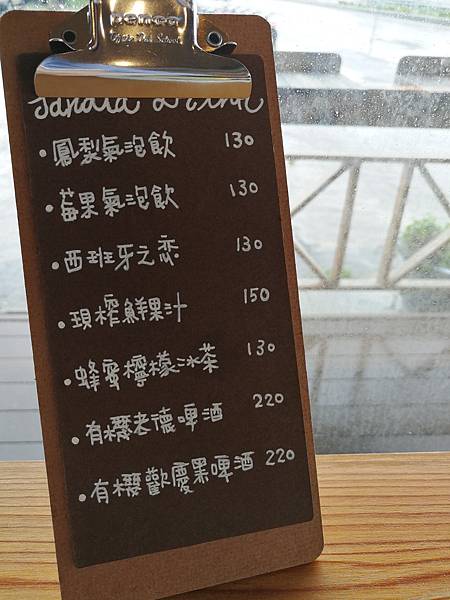 penco
鳳梨氣泡飲 130
莓果氣泡飲 130
西班牙之恋 130
現榨鮮果汁 150
蜂蜜檸檬冰茶 130
有機老德啤酒 220
有機歡慶黑啤酒 220